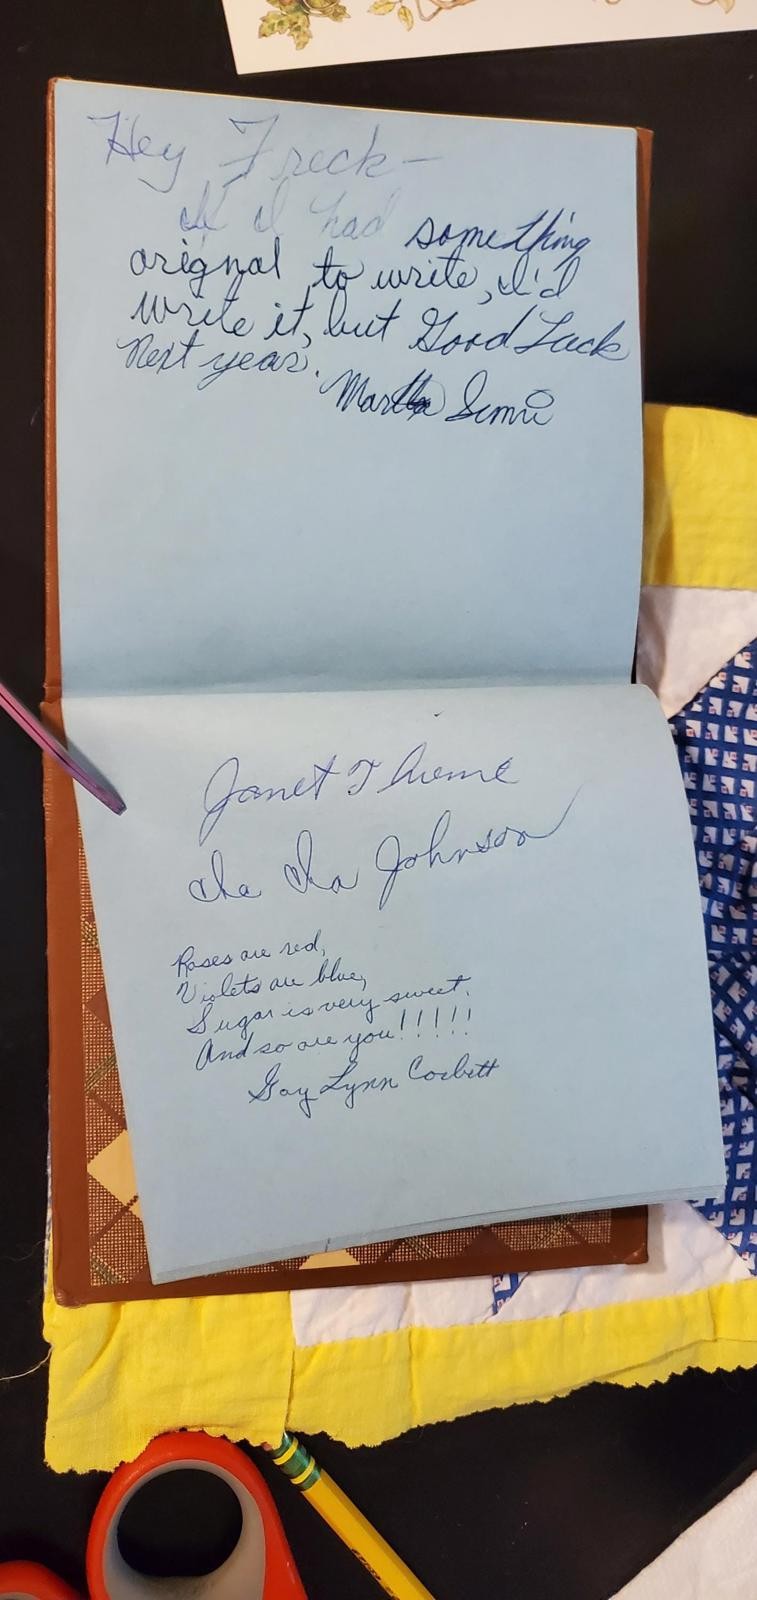 Hey Freck-
If I had something
orignal to write, I'd
write it, but Good Luck
Next year.
Martha
Janet Thieme
Cha Cha Johnson
Roses are red,
Violets are blue,
Sugar is very sweet,
And so are you!!!!!
Gay Lynn Corbett